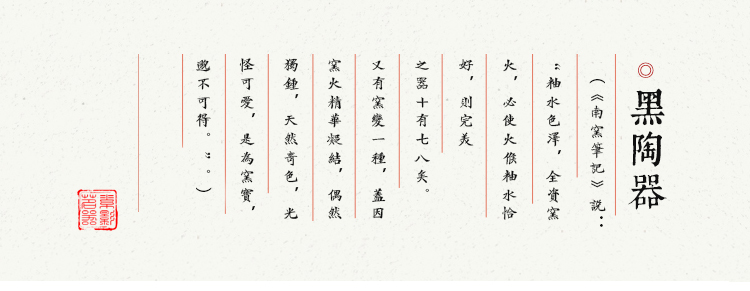 黑陶器
（《南窯筆記》説：
“釉水色澤，全資窯
火，必使火候釉水恰
好，則完美
之器十有七八矣。
又有窯變一種，蓋因
窯火精華凝結，偶然
獨鍾，天然奇色，光
怪可愛，是為窯寶，
邈不可得。”。）